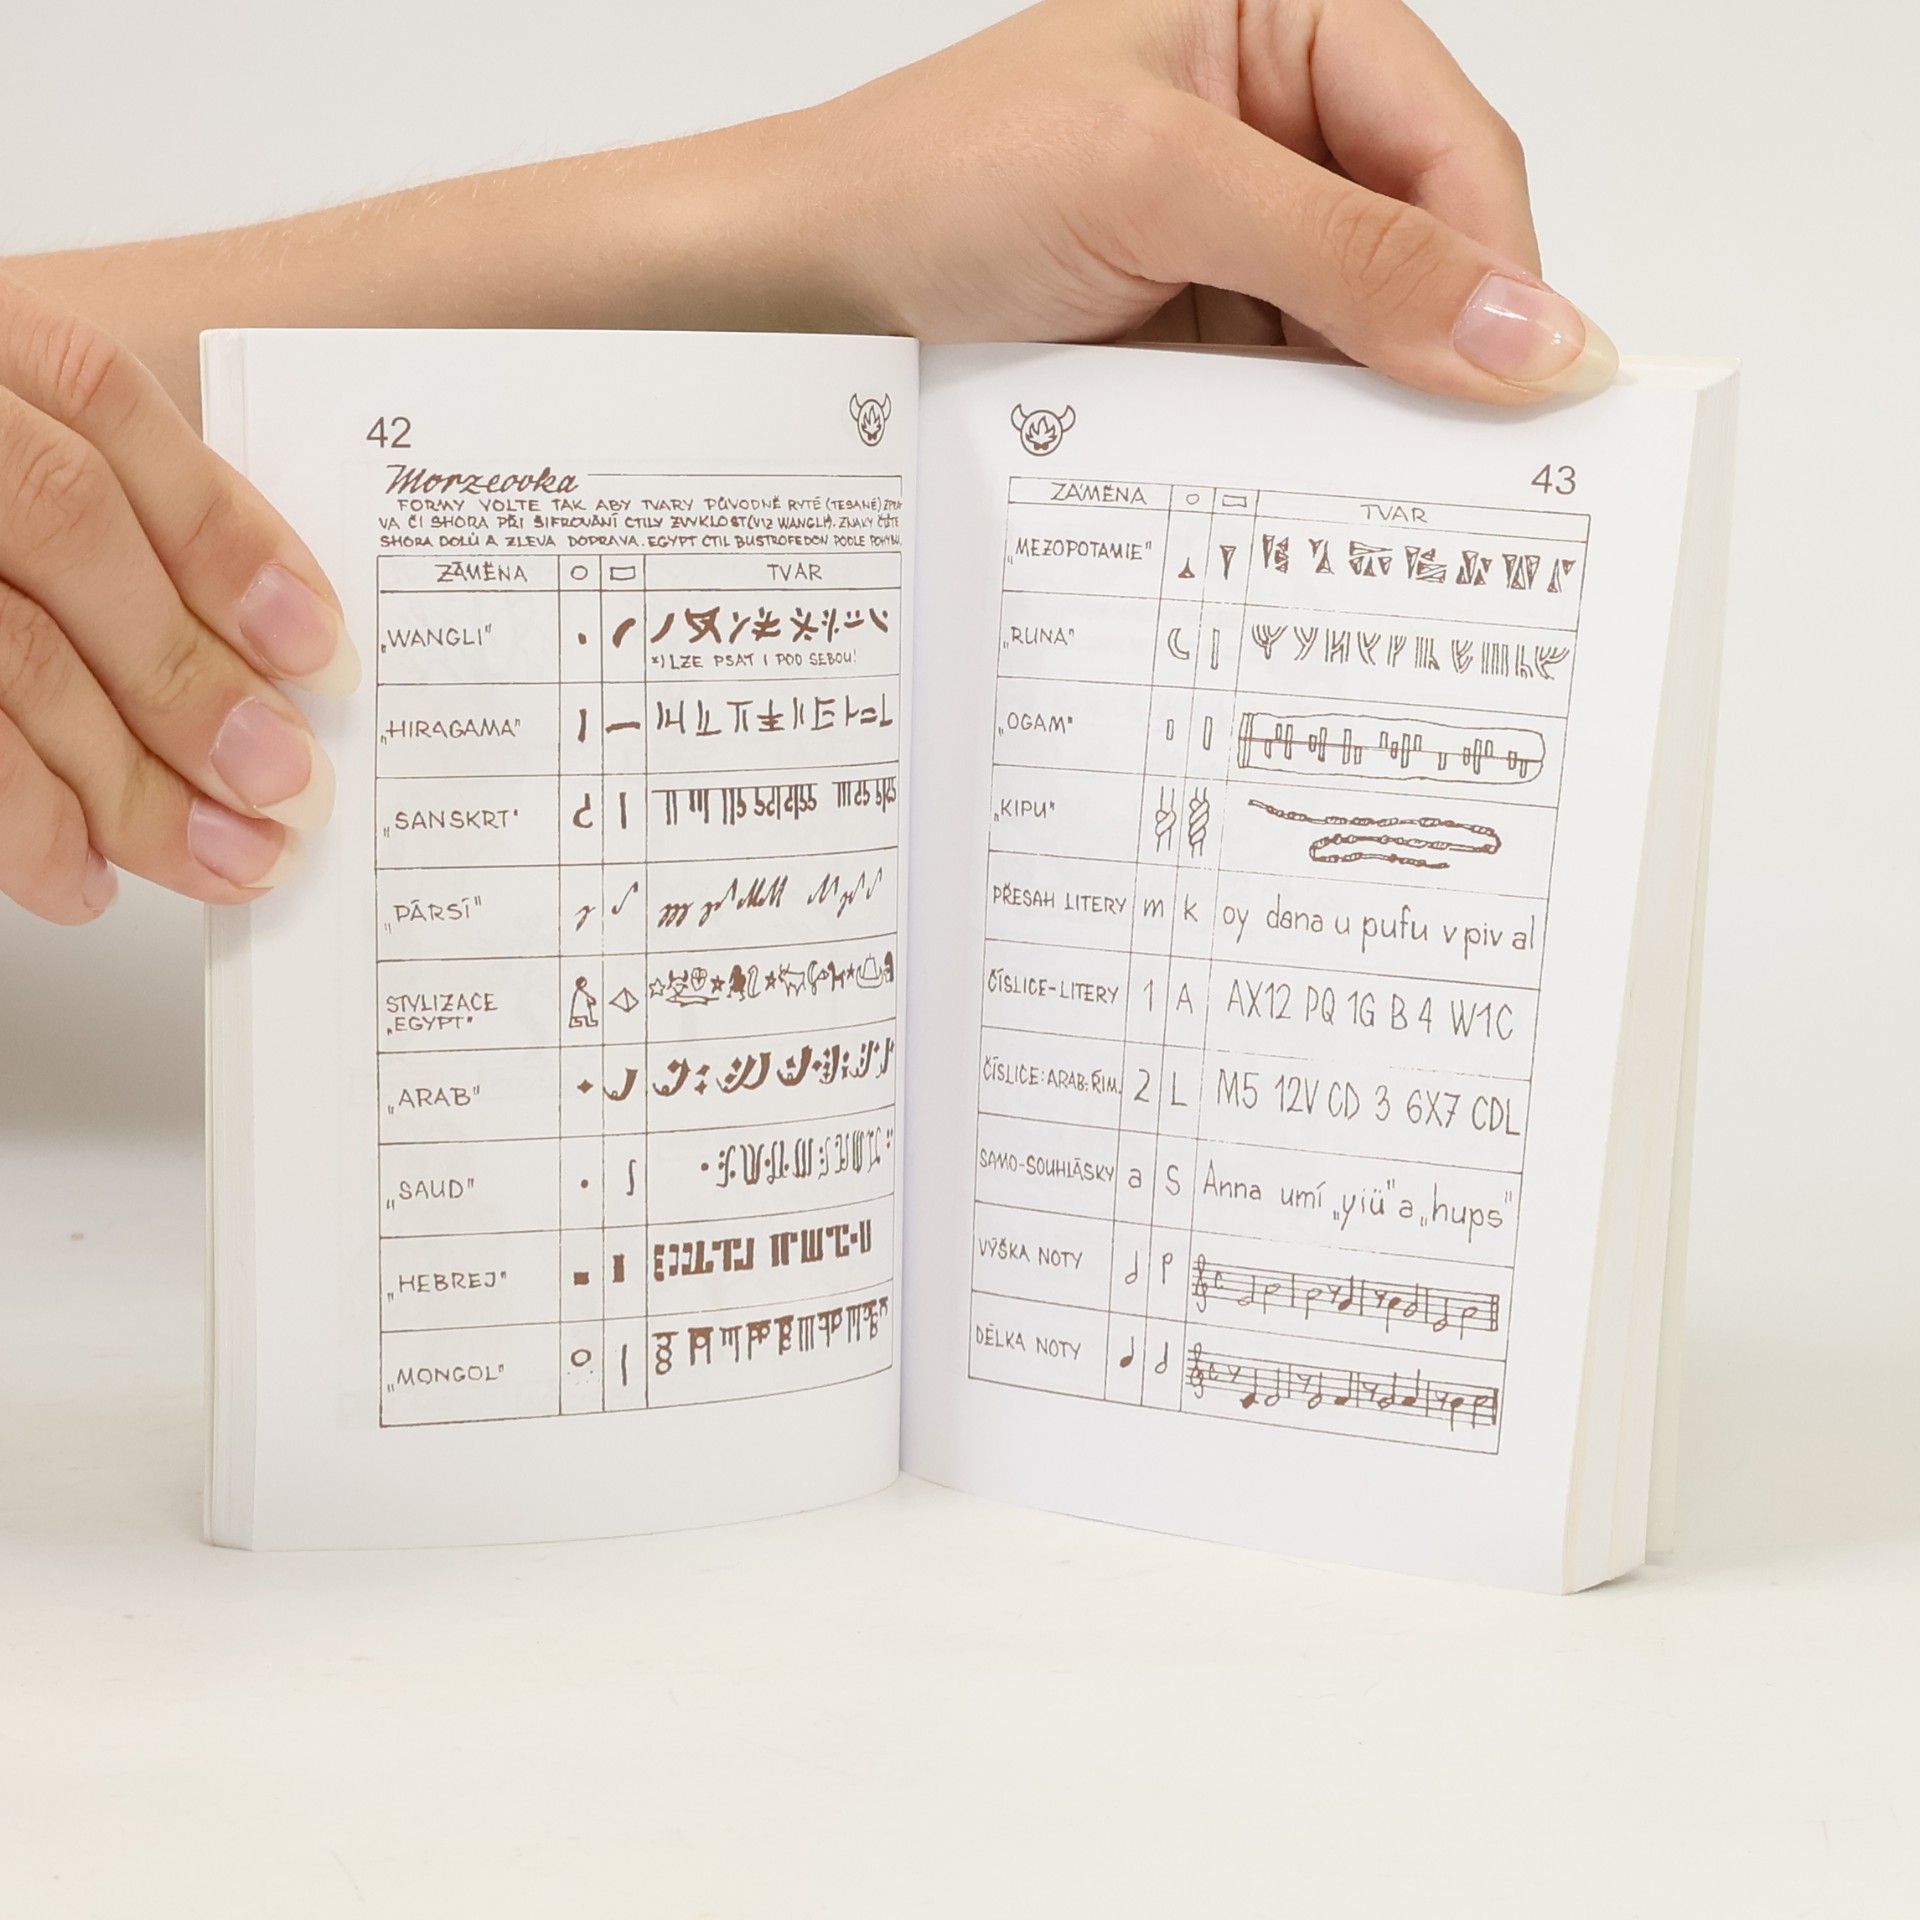 42
Morzeovka
FORMY VOLTE TAK ABY TVARY PŮVODNĚ RYTÉ (TESANÉ) ZPRA
VA ČI SHORA PŘI ŠIFROVÁNÍ CTILY ZVYKLOST (VIZ WANGLI). ZNAKY ČTĚTE
SHORA DOLŮ A ZLEVA DOPRAVA. EGYPT CTIL BUSTROFEDON PODLE POHYBU.
ZÁMĚNA TVAR
„WANGLI"
*) LZE PSÁT I POD SEBOU!
„HIRAGAMA"
„SANSKRT"
„PÁRSÍ"
STYLIZACE
„EGYPT"
„ARAB"
„SAUD"
„HEBREJ"
„MONGOL"
43
ZÁMĚNA TVAR
„MEZOPOTAMIE"
„RUNA"
„OGAM"
„KIPU"
PŘESAH LITERY m k oy dana u pufu v piv al
ČÍSLICE-LITERY 1 A AX12 PQ 1G B 4 W1C
ČÍSLICE: ARAB.-ŘÍM. 2 L M5 12V CD 3 6X7 CDL
SAMO-SOUHLÁSKY a S Anna umí „yiü" a „hups"
VÝŠKA NOTY
DÉLKA NOTY